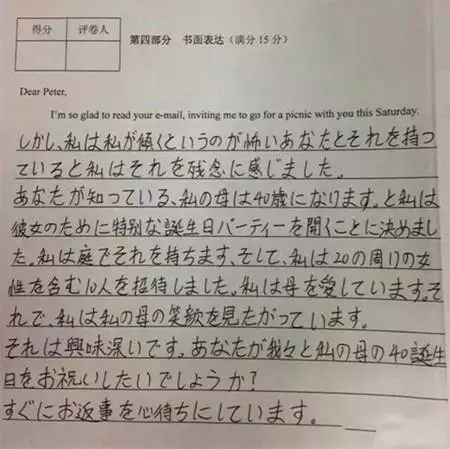 得分 评卷人
第四部分 书面表达（满分 15 分）
Dear Peter,
I'm so glad to read your e-mail, inviting me to go for a picnic with you this Saturday.
しかし、私は私が傾くというのが怖いあなたとそれを持つ
ていると私はそれを残念に感じました。
あなたが知っている、私の母は40歳になります。と私は
彼女のために特別な誕生日パーティーを開くことに決めまし
た。私は庭でそれを持ちます、そして、私は20の周りの女
性を含む10人を招待しました。私は母を愛しています。そ
れで、私は私の母の笑を見たがっています。
それは興味深いです。あなたが我々と私の母の40誕生
日をお祝いしたいでしょうか?
すぐにお返事を心待ちにしています。